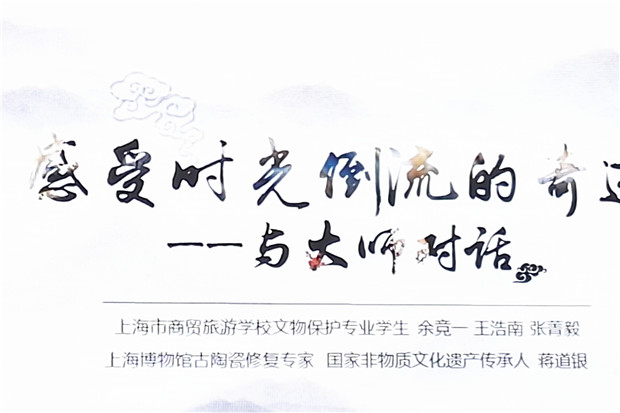 感受时光倒流的奇
——与大师对话
上海市商贸旅游学校文物保护专业学生 余竞一 王浩南 张菁毅
上海博物馆古陶瓷修复专家 国家非物质文化遗产传承人 蒋道银